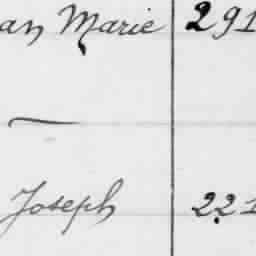 an Marie 291
—
Joseph 221